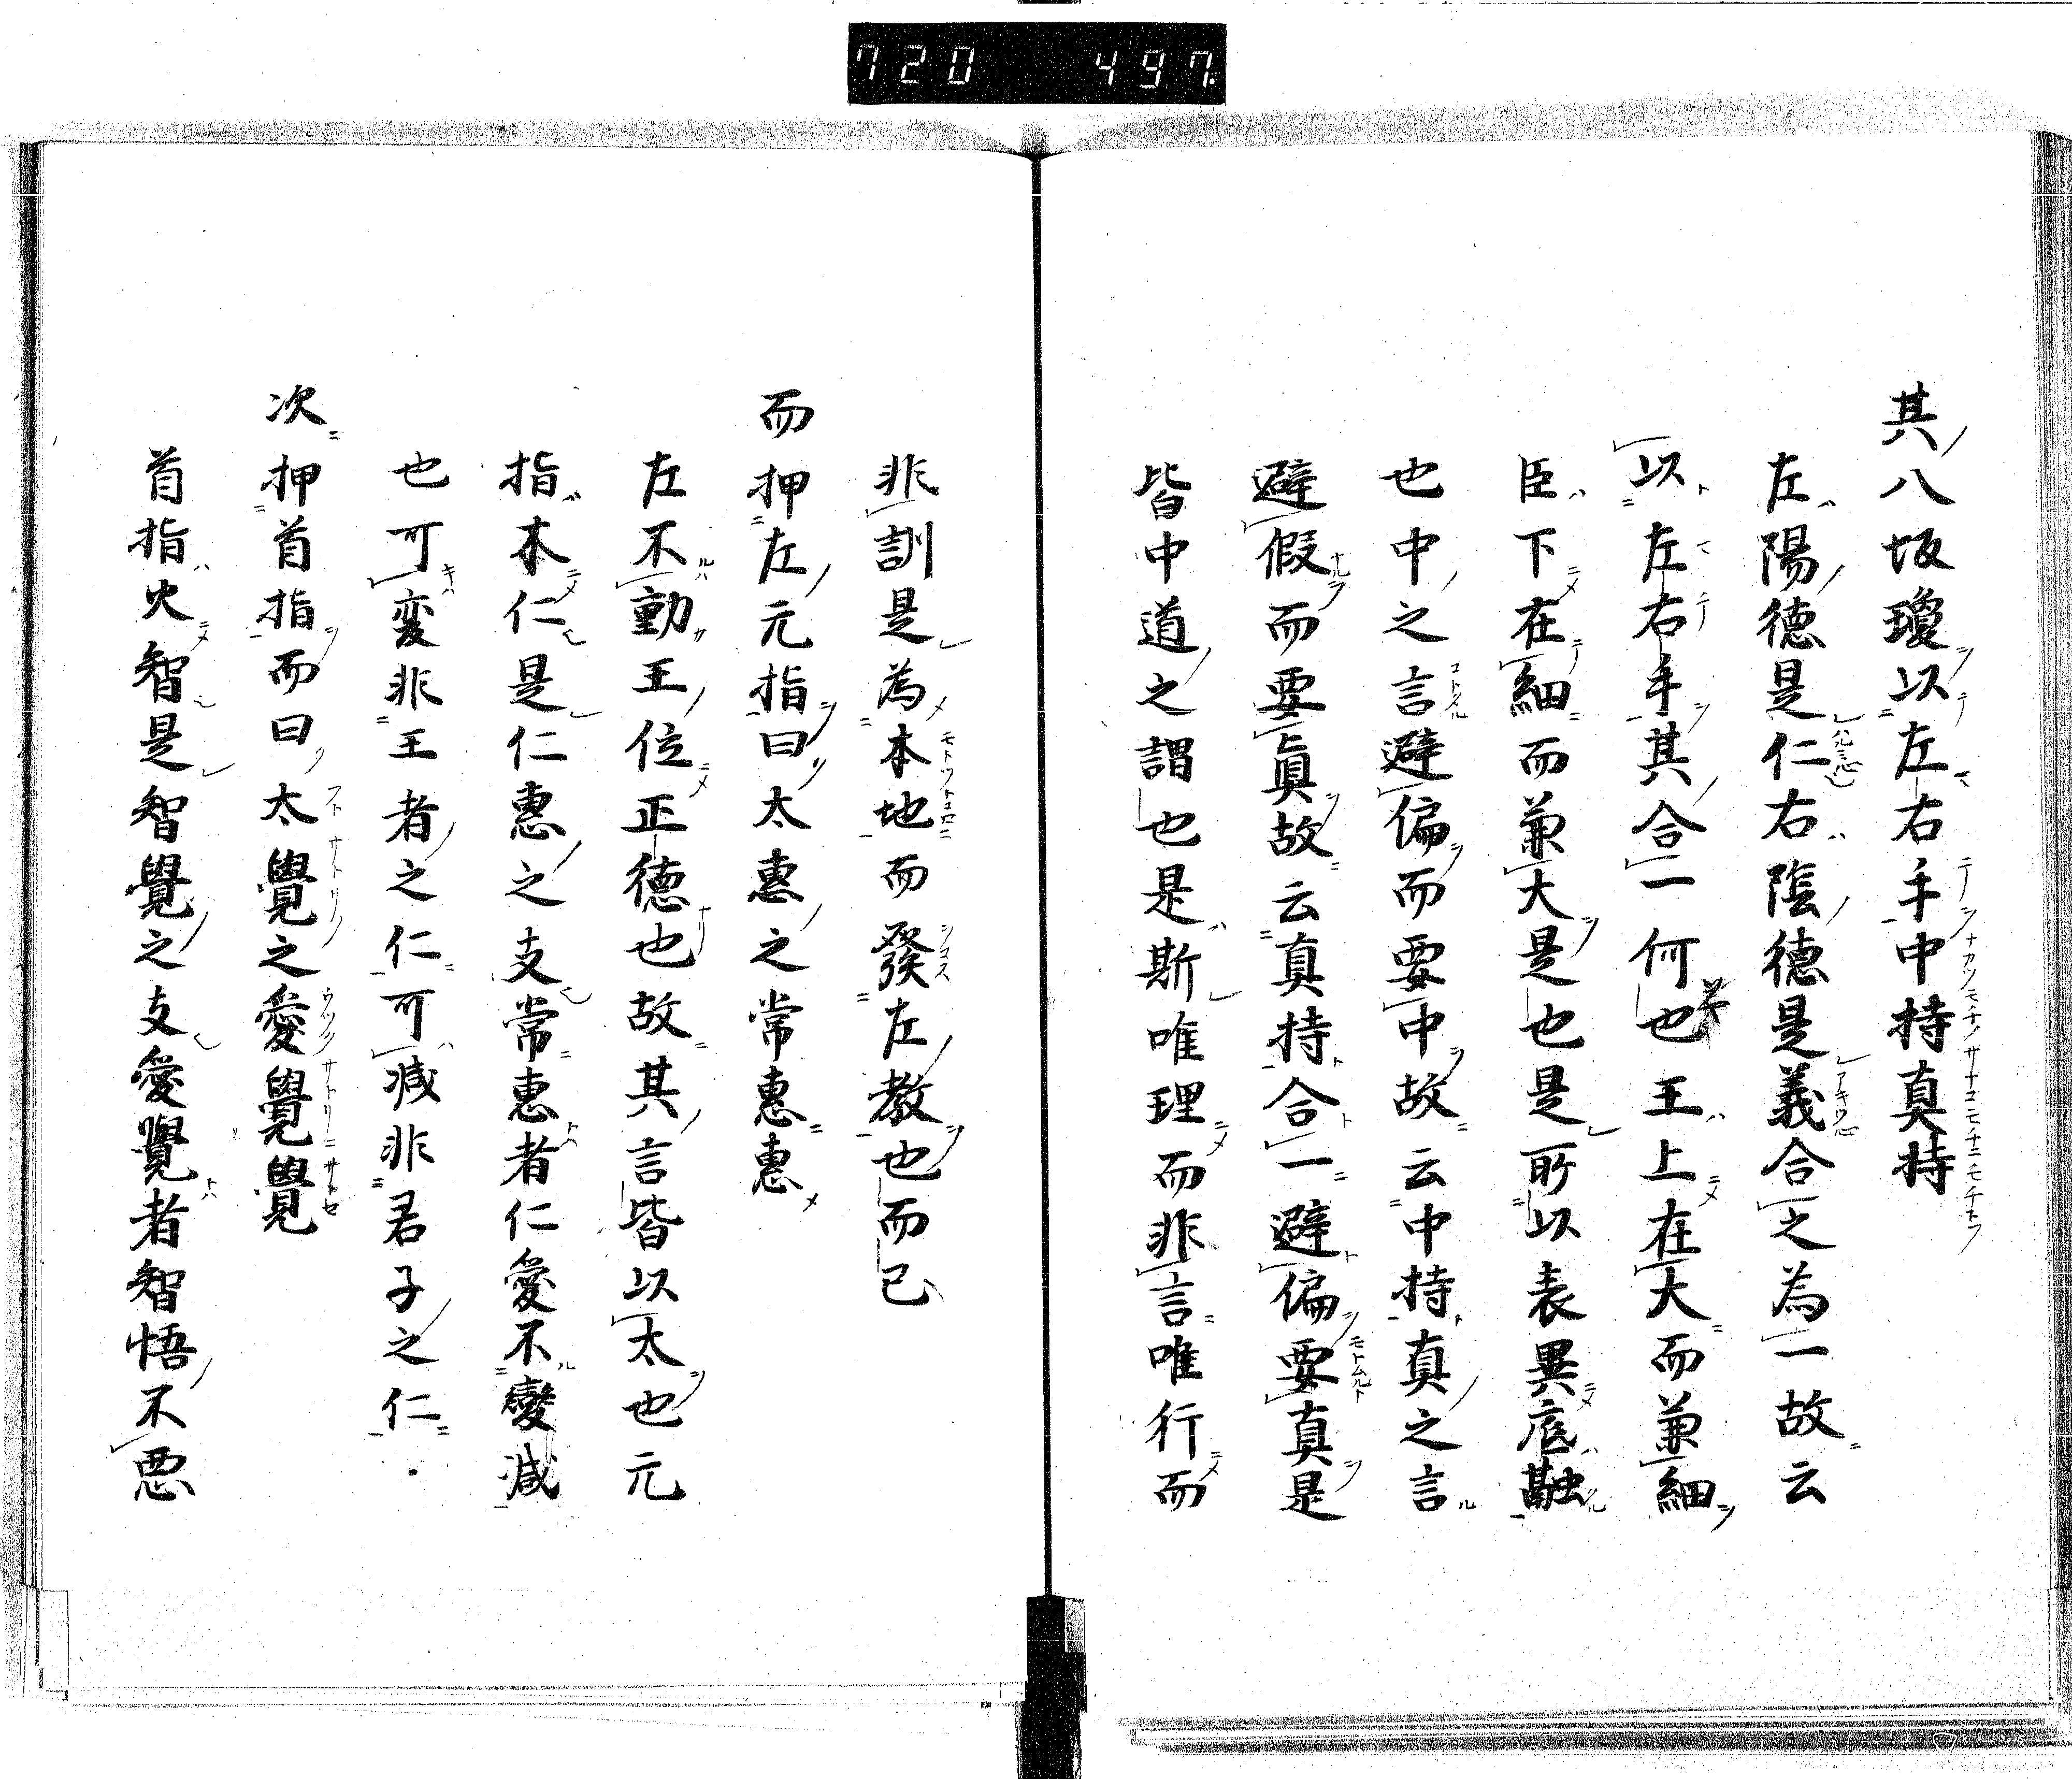 720 497
其八坂瓊以左右手中持真持
左陽徳是仁右陰徳是義合之為一故云
以左右手其合一何也王上在大而兼細
臣下在細而兼大是也是所以表異底融
也中之言避偏而要中故云中持真之言
避假而要真故云真持合一避偏要真是
皆中道之謂也是斯唯理而非言唯行而
非訓是為本地而發左教也而已
而押左元指曰太惠之常惠惠
左不動王位正徳也故其言皆以太也元
指本仁是仁惠之支常惠者仁愛不變減
也可変非王者之仁可減非君子之仁
次押首指而曰太覺之愛覺覺
首指火智是智覺之支愛覺者智悟不悪